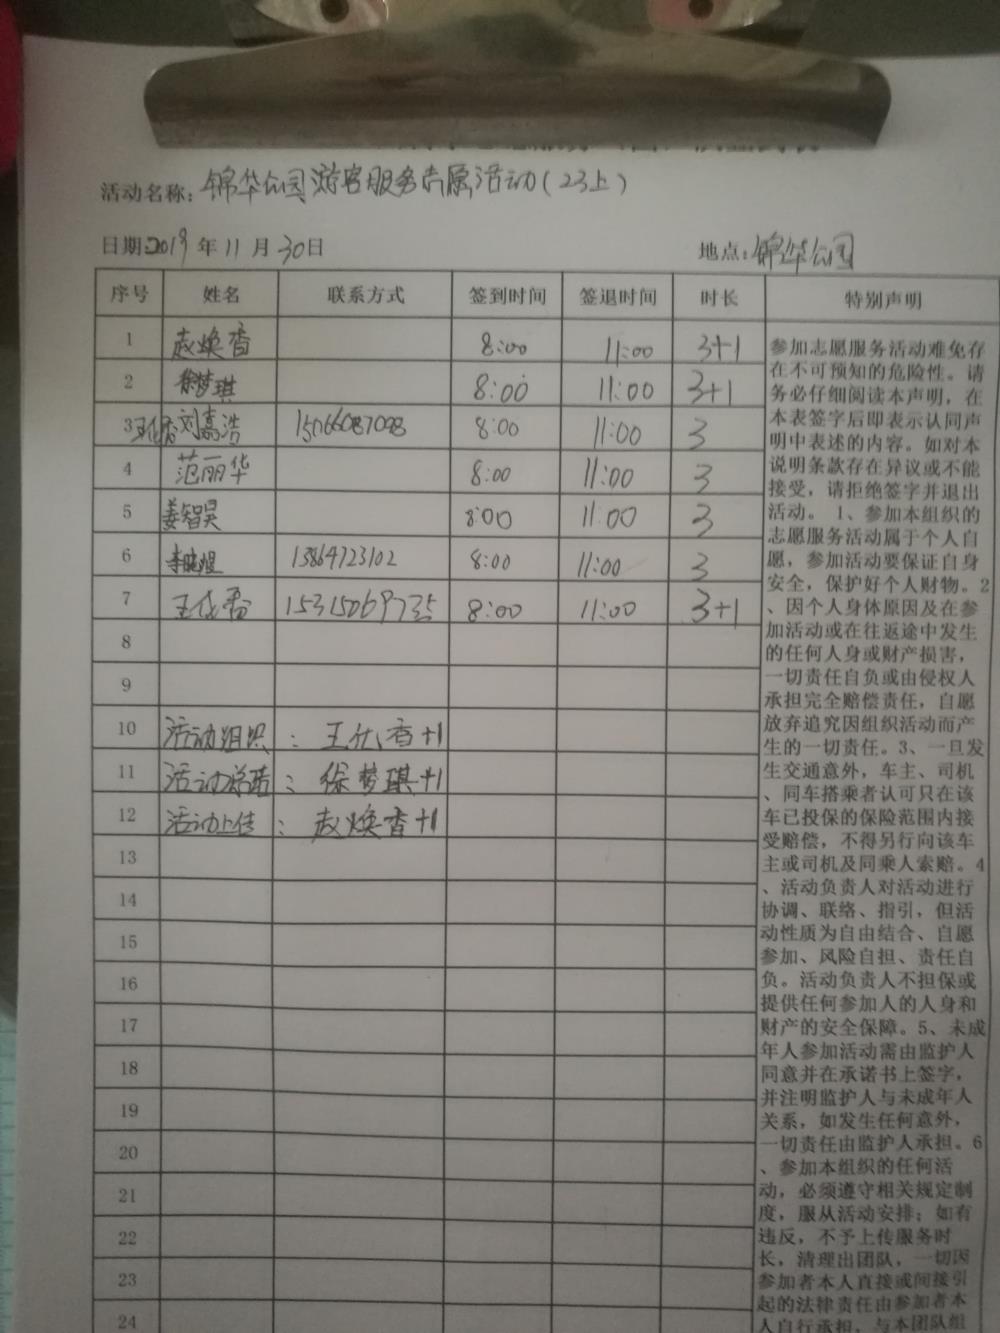 活动名称: 锦华公园游客服务志愿活动(23上)
日期:2019 年 11 月 30日 地点: 锦华公园
序号 姓名 联系方式 签到时间 签退时间 时长 特别声明
1 赵焕香 8:00 11:00 3+1
2 徐梦琪 8:00 11:00 3+1
3 刘嘉浩 15066087098 8:00 11:00 3
4 范丽华 8:00 11:00 3
5 姜智昊 8:00 11:00 3
6 李晓煜 13864723102 8:00 11:00 3
7 王代香 15315069735 8:00 11:00 3+1
8
9
10 活动组织: 王代香+1
11 活动总结: 徐梦琪+1
12 活动上传: 赵焕香+1
13
14
15
16
17
18
19
20
21
22
23
24
参加志愿服务活动难免存
在不可预知的危险性。请
务必仔细阅读本声明,在
本表签字后即表示认同声
明中表述的内容。如对本
说明条款存在异议或不能
接受,请拒绝签字并退出
活动。 1、参加本组织的
志愿服务活动属于个人自
愿,参加活动要保证自身
安全,保护好个人财物。2
、因个人身体原因及在参
加活动或在往返途中发生
的任何人身或财产损害,
一切责任自负或由侵权人
承担完全赔偿责任,自愿
放弃追究因组织活动而产
生的一切责任。3、一旦发
生交通意外,车主、司机
、同车搭乘者认可只在该
车已投保的保险范围内接
受赔偿,不得另行向该车
主或司机及同乘人索赔。4
、活动负责人对活动进行
协调、联络、指引,但活
动性质为自由结合、自愿
参加、风险自担、责任自
负。活动负责人不担保或
提供任何参加人的人身和
财产的安全保障。5、未成
年人参加活动需由监护人
同意并在承诺书上签字,
并注明监护人与未成年人
关系,如发生任何意外,
一切责任由监护人承担。6
、参加本组织的任何活
动,必须遵守相关规定制
度,服从活动安排;如有
违反,不予上传服务时
长,清理出团队,一切因
参加者本人直接或间接引
起的法律责任由参加者本
人自行承担,与本团队组